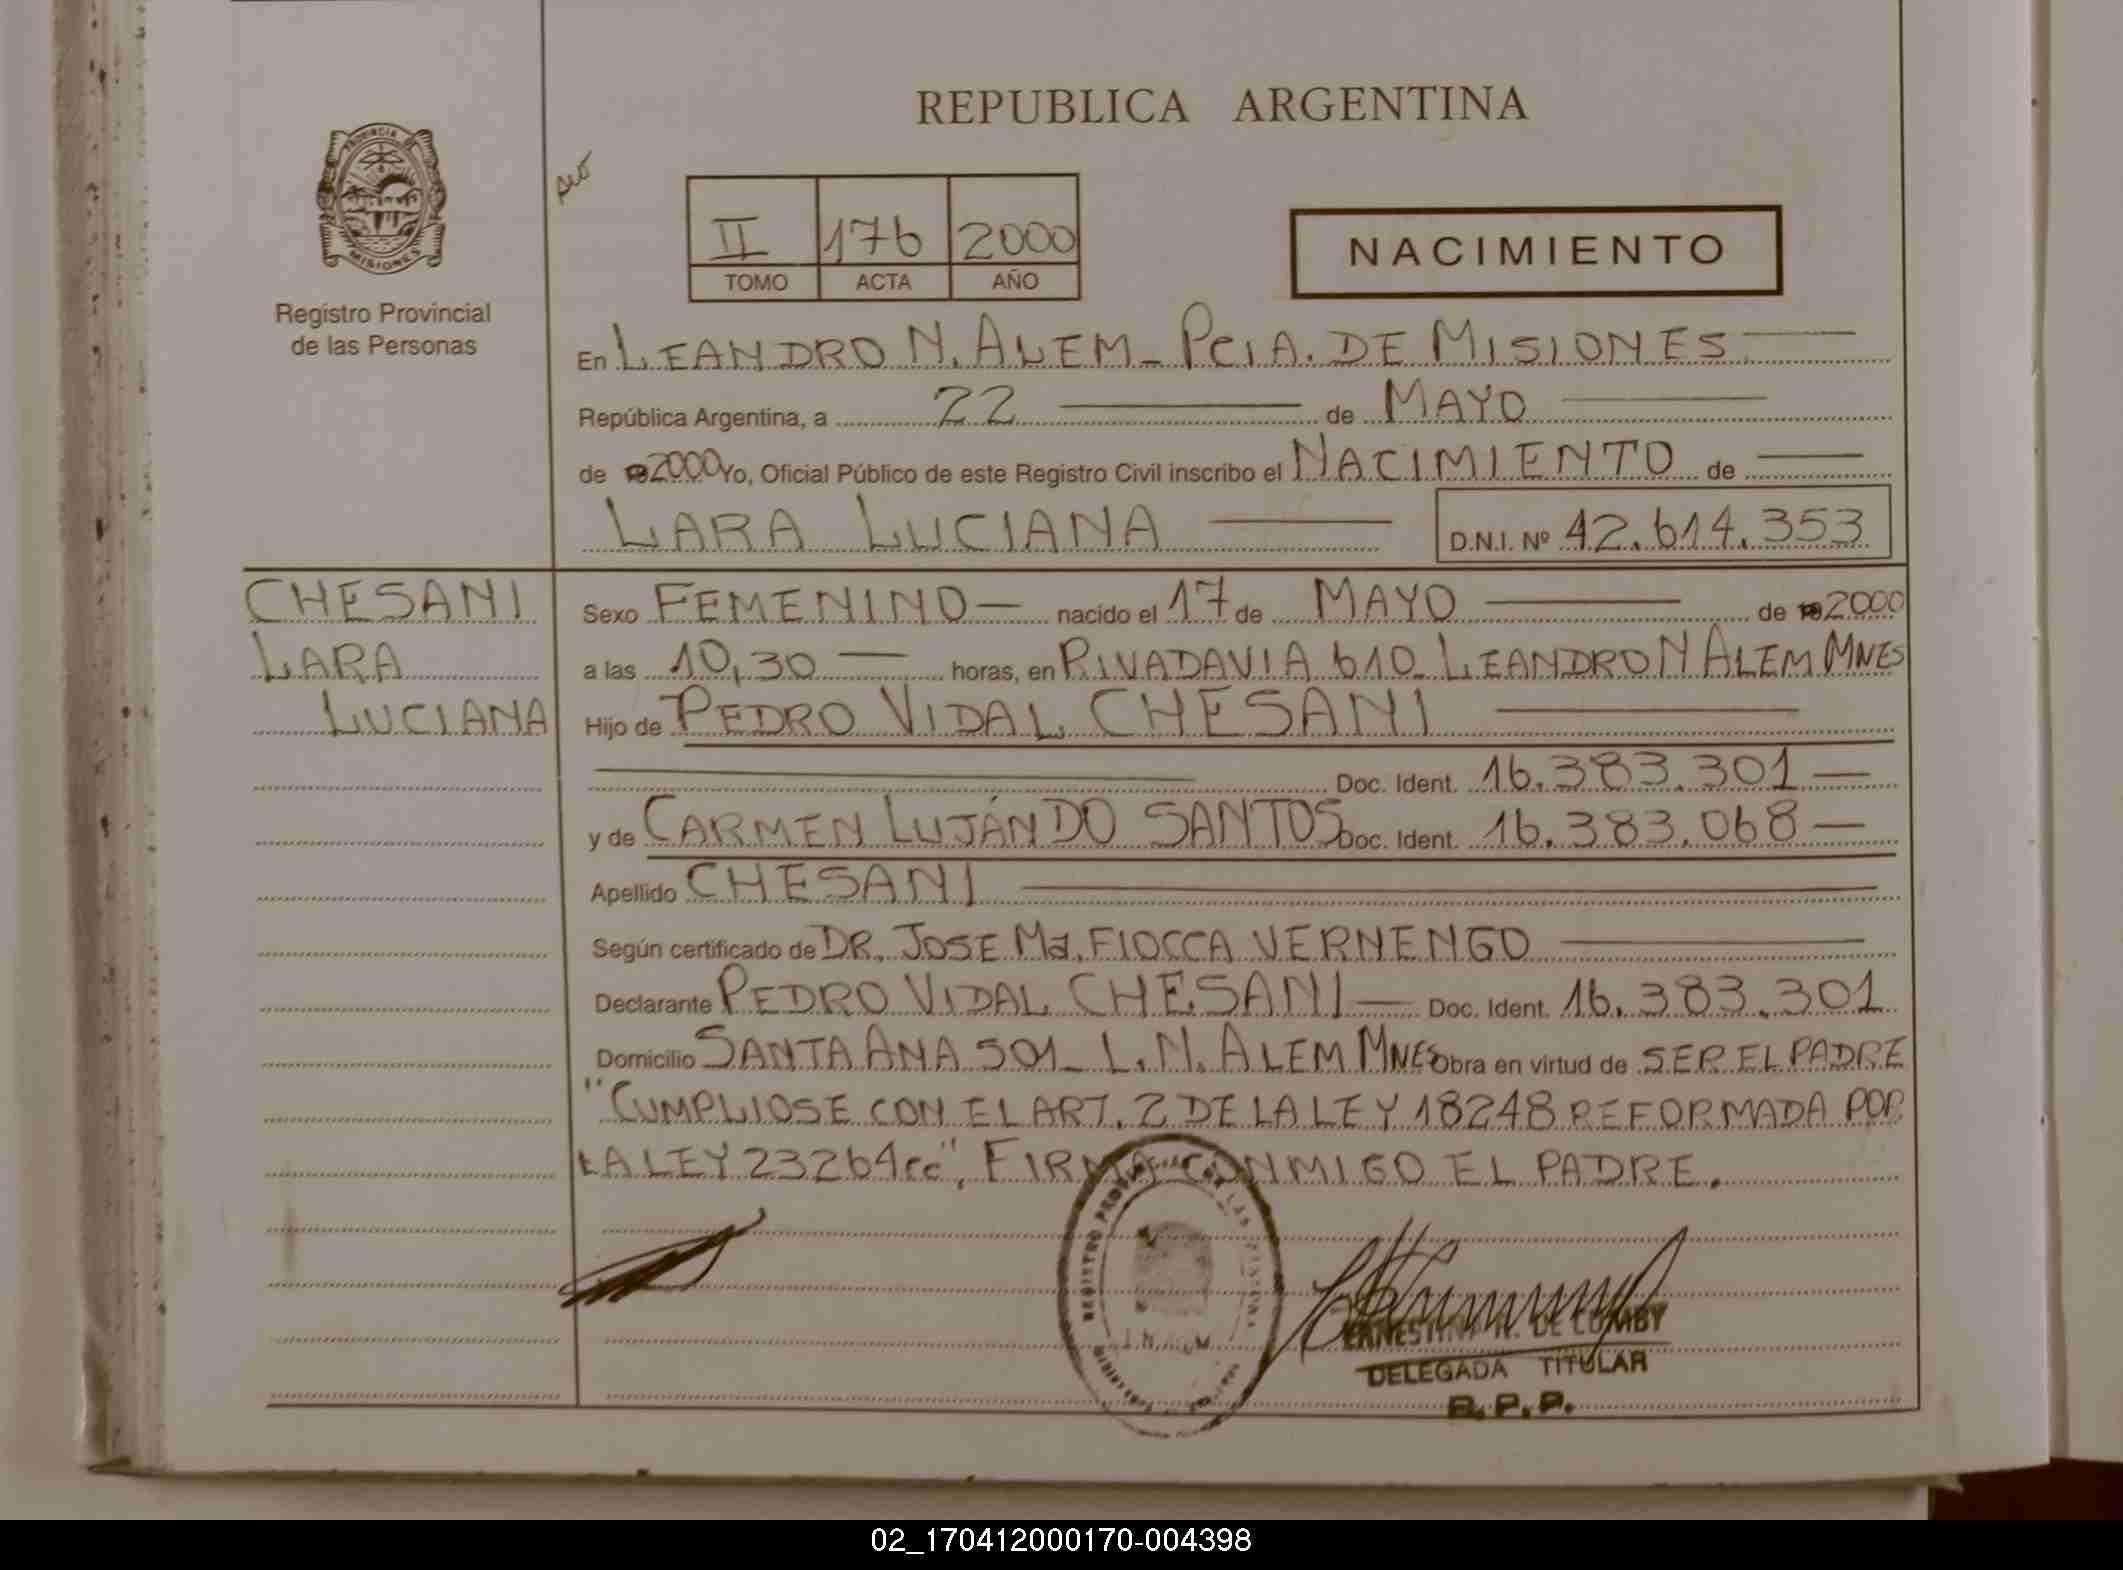 REPUBLICA ARGENTINA
PROVINCIA DE
MISIONES
Registro Provincial
de las Personas
II 176 2000
TOMO ACTA AÑO
NACIMIENTO
En LEANDRO N. ALEM_ PCIA. DE MISIONES
República Argentina, a 22 de MAYO
de 2000 Yo, Oficial Público de este Registro Civil inscribo el NACIMIENTO de
LARA LUCIANA D.N.I. Nº 42.614.353
CHESANI
LARA
LUCIANA
Sexo FEMENINO nacido el 17 de MAYO de 2000
a las 10,30 horas, en RIVADAVIA 610_ LEANDRO N ALEM MNES
Hijo de PEDRO VIDAL CHESANI
Doc. Ident. 16.383.301
y de CARMEN LUJÁN DO SANTOS Doc. Ident. 16.383.068
Apellido CHESANI
Según certificado de DR. JOSE Ma. FIOCCA VERNENGO
Declarante PEDRO VIDAL CHESANI Doc. Ident. 16.383.301
Domicilio SANTA ANA 501_ L.N. ALEM MNES Obra en virtud de SER EL PADRE
"CUMPLIOSE CON EL ART. 2 DE LA LEY 18248 REFORMADA POR
LA LEY 23264 cc", FIRMA CONMIGO EL PADRE.
REGISTRO PROVINCIAL DE LAS PERSONAS
ERNESTINA R. DE
DELEGADA TITULAR
R.P.P.
02_170412000170-004398